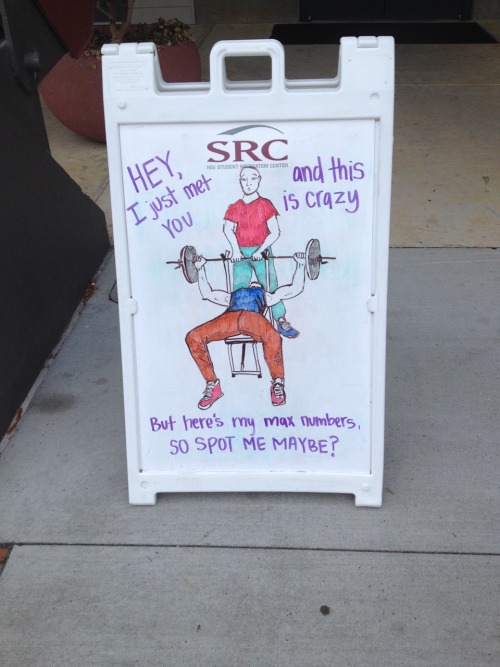 SRC
HSU STUDENT RECREATION CENTER
HEY,
I just met
YOU
and this
is crazy
But here's my max numbers,
SO SPOT ME MAYBE?